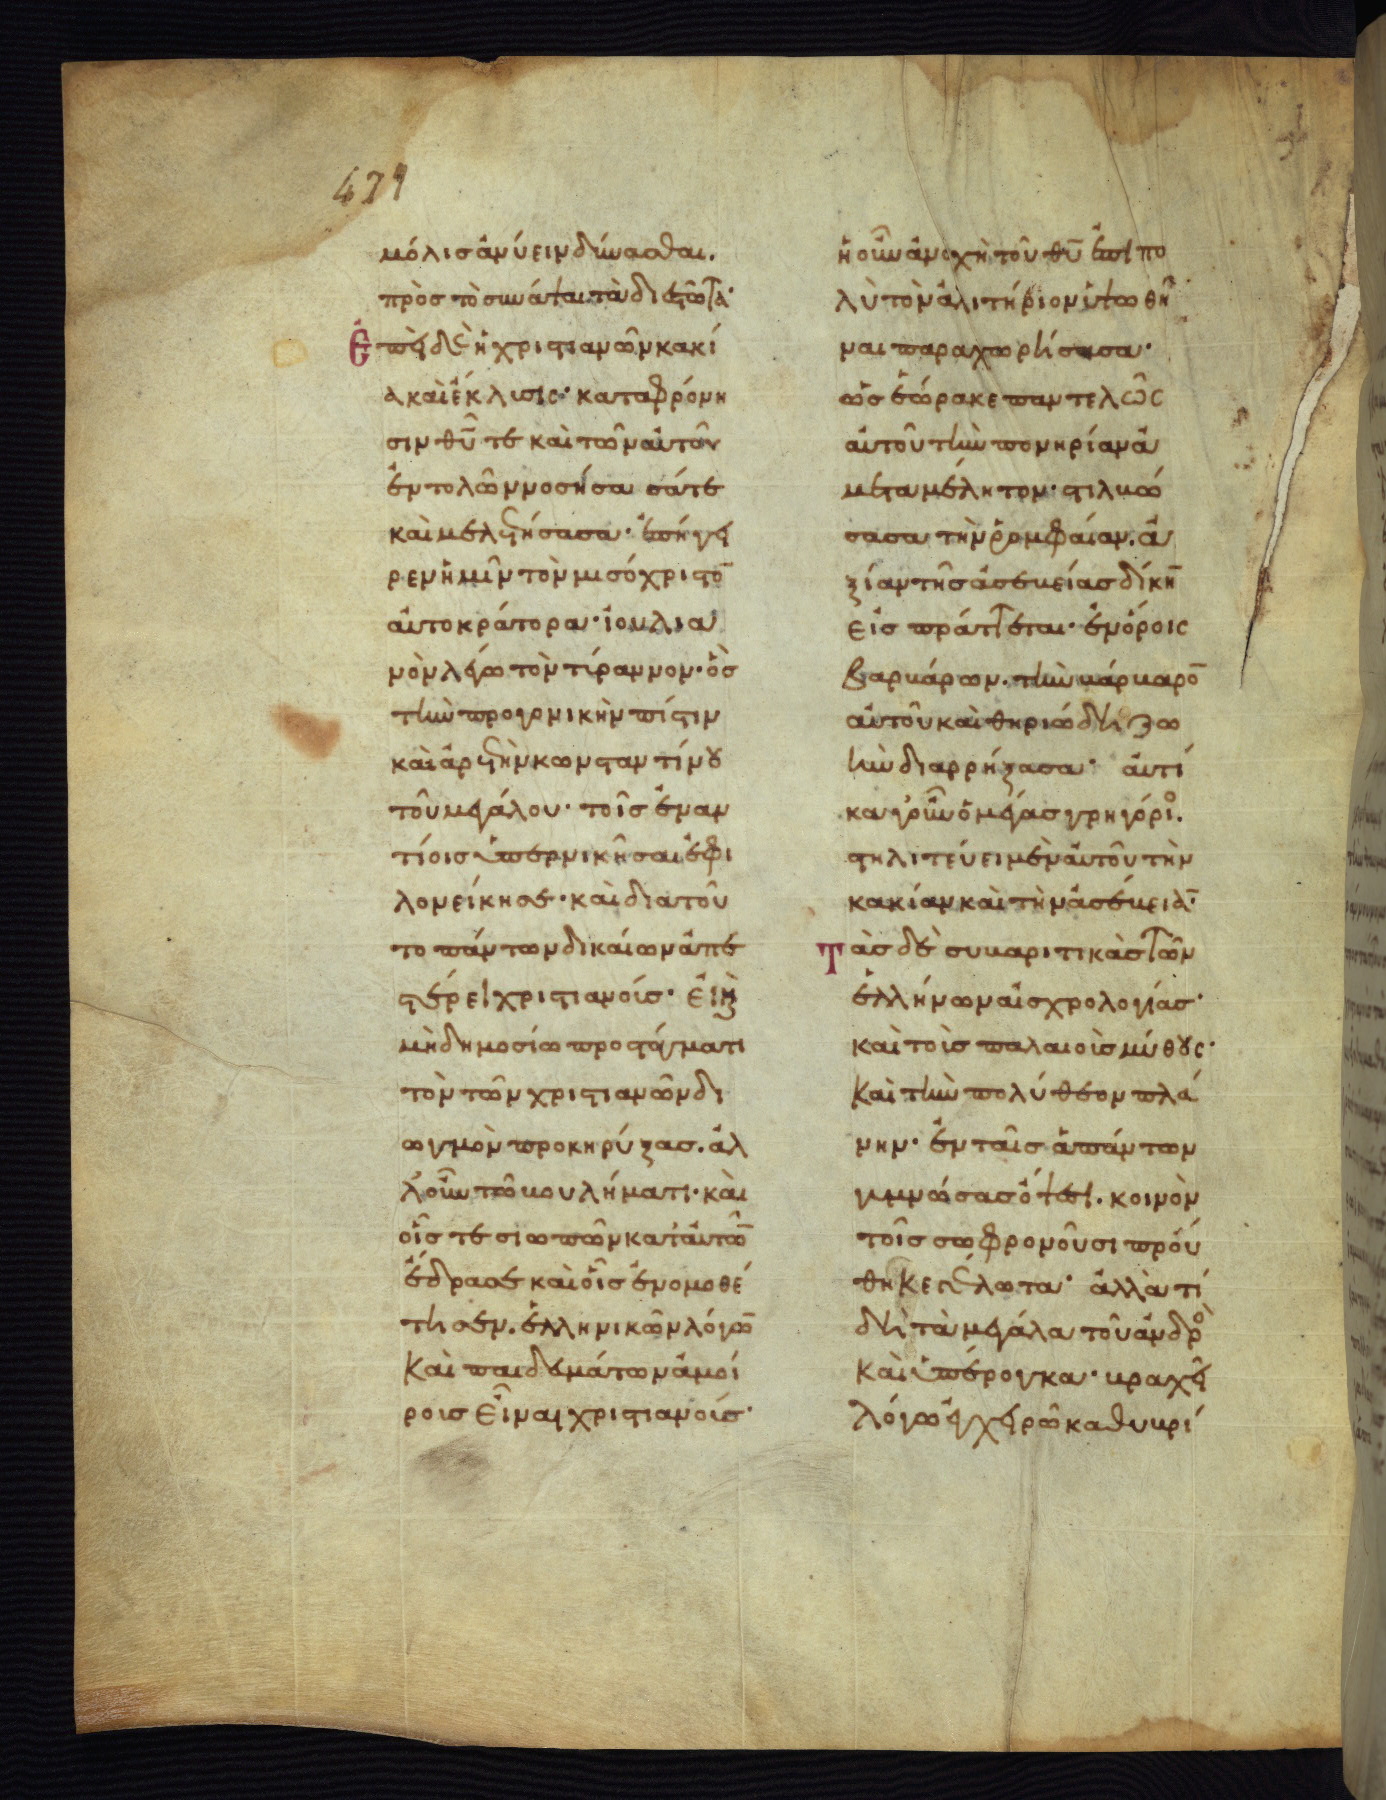 479
μόλις ἀνύειν δύνασθαι.
πρὸς τὸ συνάψαι τὰ διεστῶτα·
Ἐπεὶ δὲ ἡ χριστιανῶν κακί
α καὶ ἔκλυσις· καταφρόνη
σιν θῡ τε καὶ τῶν αὐτοῦ
ἐντολῶν νοσήσασά τε
καὶ μελετήσασα· ἐπήγει
ρεν ἡμῖν τὸν μισόχριστο̅
αὐτοκράτορα· ἰουλια
νὸν λέγω τὸν τύραννον· ὃς
τὴν προγονικὴν πίστιν
καὶ ἀρετὴν κωνσταντίνου
τοῦ μεγάλου· τοῖς ἐναν
τίοις ὑπερνικῆσαι ἐφι
λονείκησε· καὶ διὰ τοῦ
το πάντων δικαίων ἀπε
στέρει χριστιανούς· εἰ καὶ
μὴ δημοσίω προστάγματι
τὸν τῶν χριστιανῶν δι
ωγμὸν προκηρύξας. ἀλ
λ' οὖν τῶ βουλήματι· καὶ
οἷς τε σιωπῶν κατ' αὐτῶ̅
ἔδρασε καὶ οἷς ἐνομοθέ
τησεν. ἑλληνικῶν λόγω̅
καὶ παιδευμάτων ἀμοί
ροις εἶναι χριστιανούς·
ἡ οὖν ἀνοχὴ τοῦ θῡ ἐπὶ πο
λὺ τὸν ἀλιτήριον ὑψωθῆ
ναι παραχωρήσασα·
ὡς ἑώρακε παντελῶς
αὐτοῦ τὴν πονηρίαν ἀ
μεταμέλητον· στιλβώ
σασα τὴν ῥομφαίαν. ἀ
ξίαν τῆς ἀσεβείας δίκη̅
εἰσπράττεται· ἐν ὅροις
βαρβάρων. τὴν βάρβαρο̅
αὐτοῦ καὶ θηριώδη ζω
ὴν διαρρήξασα· αὐτί
κα γοῦν ὁ μέγας γρηγόριο.
στηλιτεύει μὲν αὐτοῦ τὴν
κακίαν καὶ τὴν ἀσέβεια̅·
Τὰς δὲ συβαριτικὰς τῶν
ἑλλήνων αἰσχρολογίας·
καὶ τοὺς παλαιοὺς μύθους·
καὶ τὴν πολύθεον πλά
νην· ἐν ταῖς ἁπάντων
γυμνώσας ὄψεσι. κοινὸν
τοῖς σωφρονοῦσι πρού
θηκε γέλωτα· ἀλλὰ τί
δεῖ τὰ μεγάλα τοῦ ἀνδρὸ
καὶ ὑπέρογκα· βραχεῖ
λόγω ἐγχειρῶ καθυβρί